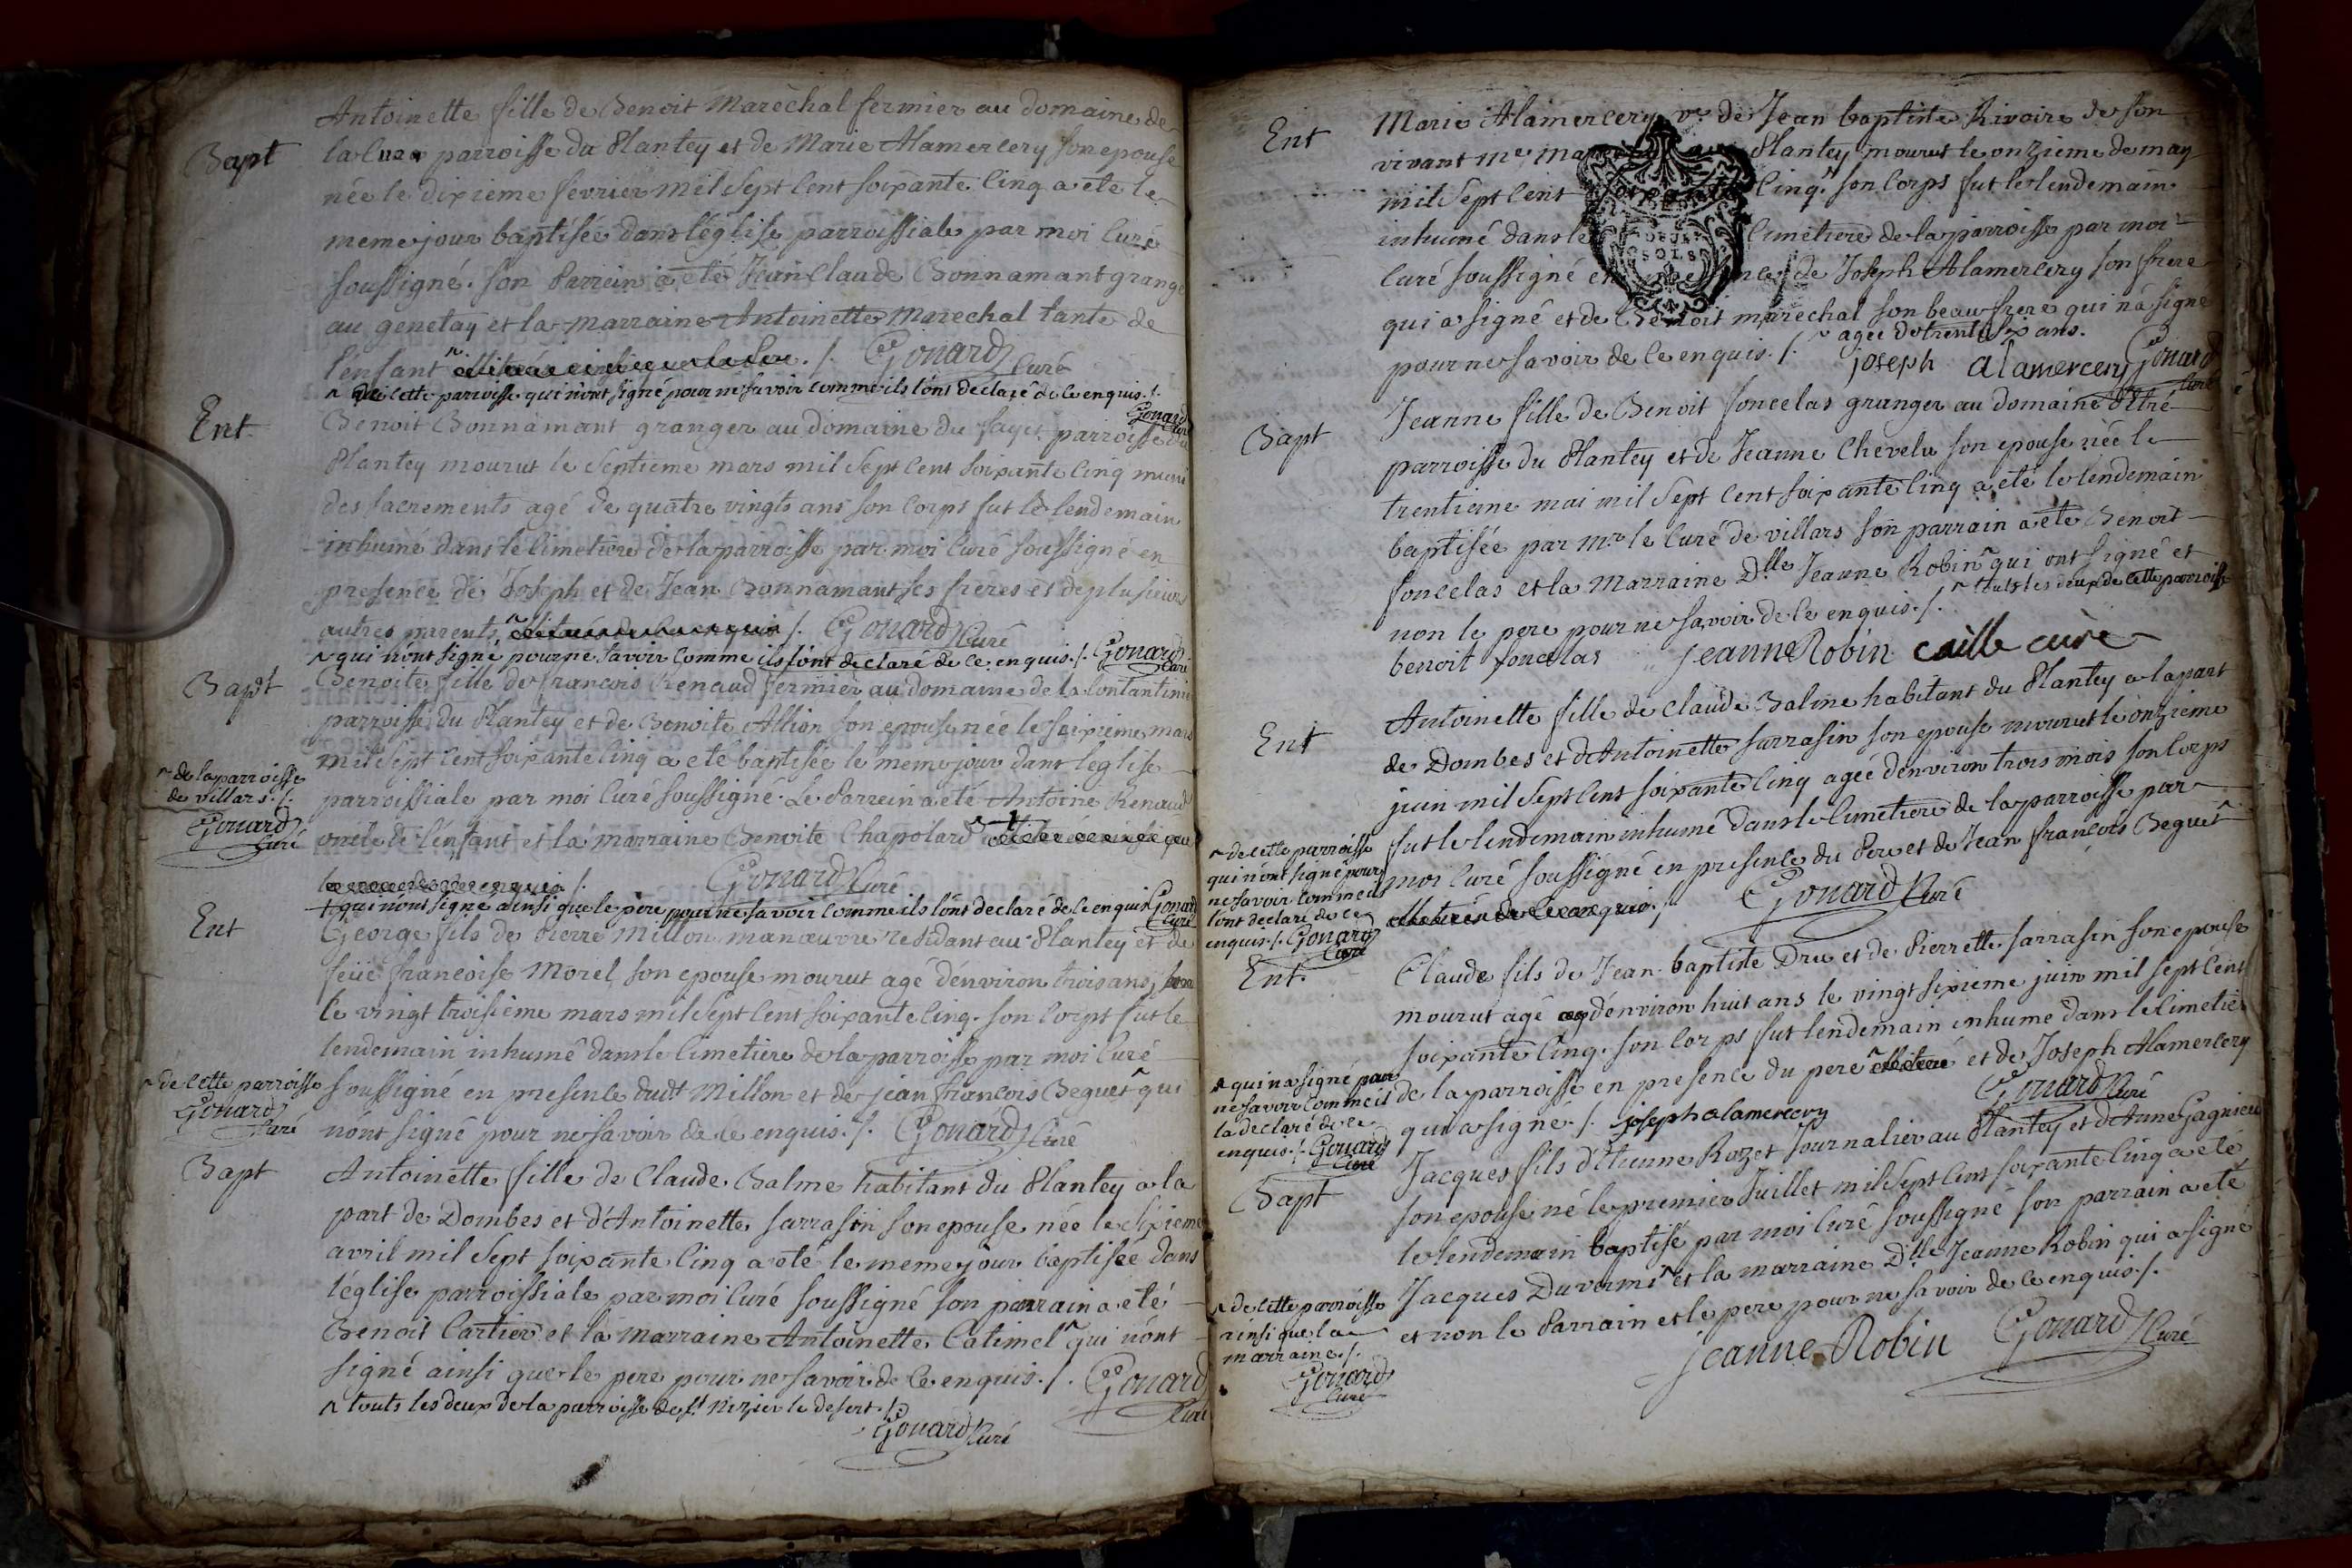 Bapt
Antoinette fille de Benoit Maréchal fermier au domaine de
la parroisse du Plantey et de Marie Alamercery son epouse
née le dixieme fevrier mil sept cent soixante cinq a eté le
meme jour baptisée dans l'église parroissiale par moi curé
soussigné. son Parrein a été Jean Claude Bonnamant grange
au genetay et la marraine Antoinette Marechal tante de
l'enfant ^ ./. Gonard curé
^ de cette parroisse qui n'ont signé pour ne savoir comme ils l'ont declaré de ce enquis ./.
Gonard curé
Ent
Benoit Bonnamant granger au domaine du fayet parroisse du
Plantey mourut le septieme mars mil sept cent soixante cinq muni
des sacrements agé de quatre vingts ans son corps fut le lendemain
inhumé dans le cimetière de la parroisse par moi curé soussigné en
presence de Joseph et de Jean Bonnamant ses freres et de plusieurs
autres parents ^ ./. Gonard curé
^ qui n'ont signé pour ne savoir comme ils l'ont declaré de ce enquis ./. Gonard curé
Bapt
Benoite fille de francois Renaud fermier au domaine de la
parroisse du Plantey et de Benoite Allion son epouse née le seixieme mars
mil sept cent soixante cinq a eté baptisée le meme jour dans l'eglise
parroissiale par moi curé soussigné. Le Parrein a eté Antoine Renaud
oncle de l'enfant et la marraine Benoite Chapolard ^
./. Gonard curé
^ de la parroisse
de villars ./.
Gonard
curé
+ qui n'ont signé ainsi que le père pour ne savoir comme ils l'ont declaré de ce enquis Gonard curé
Ent
George fils de Pierre Millon manœuvre residant au Plantey et de
feüe francoise Morel son epouse mourut agé d'environ trois ans
le vingt troisieme mars mil sept cent soixante cinq. son corps fut le
lendemain inhumé dans le cimetiere de la parroisse par moi curé
soussigné en presence dudt Millon et de jean francois Beguet ^ qui
n'ont signé pour ne savoir de ce enquis ./. Gonard curé
^ de cette parroisse
Gonard
curé
Bapt
Antoinette fille de Claude Balme habitant du Plantey a la
part de Dombes et d'Antoinette sarrasin son epouse née le sixieme
avril mil sept soixante cinq a eté le meme jour baptisée dans
l'église parroissiale par moi curé soussigné son parrain a eté
Benoit Cartier et la marraine Antoinette Catimel ^ qui n'ont
signé ainsi que le pere pour ne savoir de ce enquis ./. Gonard
curé
^ touts les deux de la parroisse de st Nizier le desert ./.
Gonard curé
Ent
Marie Alamercery ve de Jean baptiste Rivoire de son
vivant me Plantey mourut le onzieme de may
mil sept cent soixante cinq ^ son corps fut le lendemain
inhumé dans le cimetiere de la parroisse par moi
curé soussigné en presence de Joseph Alamercery son frere
qui a signé et de Benoit maréchal son beau frere qui n'a signé
pour ne savoir de ce enquis ./.
^ agée de trente six ans.
joseph alamercery Gonard
curé
Bapt
Jeanne fille de Benoit foncelas granger au domaine
parroisse du Plantey et de Jeanne Chevelu son epouse née le
trentieme mai mil sept cent soixante cinq a eté le lendemain
baptisée par mr le curé de villars son parrain a eté Benoit
foncelas et la Marraine Dlle Jeanne Robin ^ qui ont signé et
non le pere pour ne savoir de ce enquis ./. ^ touts les deux de cette parroisse
benoit foncelas jeanne Robin caille curé
Ent
Antoinette fille de Claude Balme habitant du Plantey a la part
de Dombes et d'Antoinette sarrasin son epouse mourut le onzieme
juin mil sept cent soixante cinq agée d'environ trois mois son corps
fut le lendemain inhumé dans le cimetiere de la parroisse par
moi curé soussigné en presence du Pere et de Jean francois Beguet ^
./. Gonard curé
^ de cette parroisse
qui n'ont signé pour
ne savoir comme ils
l'ont declaré de ce
enquis ./. Gonard
curé
Ent.
Claude fils de Jean baptiste Dru et de Pierrette sarrasin son epouse
mourut agé d'environ huit ans le vingt sixieme juin mil sept cent
soixante cinq. son corps fut lendemain inhumé dans le cimetiere
de la parroisse en presence du pere ^ et de Joseph Alamercery
qui a signé ./. joseph alamercery Gonard curé
^ qui n'a signé pour
ne savoir comme il
la declaré de ce
enquis ./. Gonard
curé
Bapt
Jacques fils d'Etienne Rozet journalier au Plantey et d'Anne Gagnieu
son epouse né le premier Juillet mil sept cent soixante cinq a eté
le lendemain baptisé par moi curé soussigné son parrain a eté
Jacques ^ et la marraine Dlle Jeanne Robin qui a signé
et non le Parrain et le pere pour ne savoir de ce enquis ./.
jeanne Robin Gonard curé
^ de cette parroisse
ainsi que la
marraine ./.
Gonard
curé